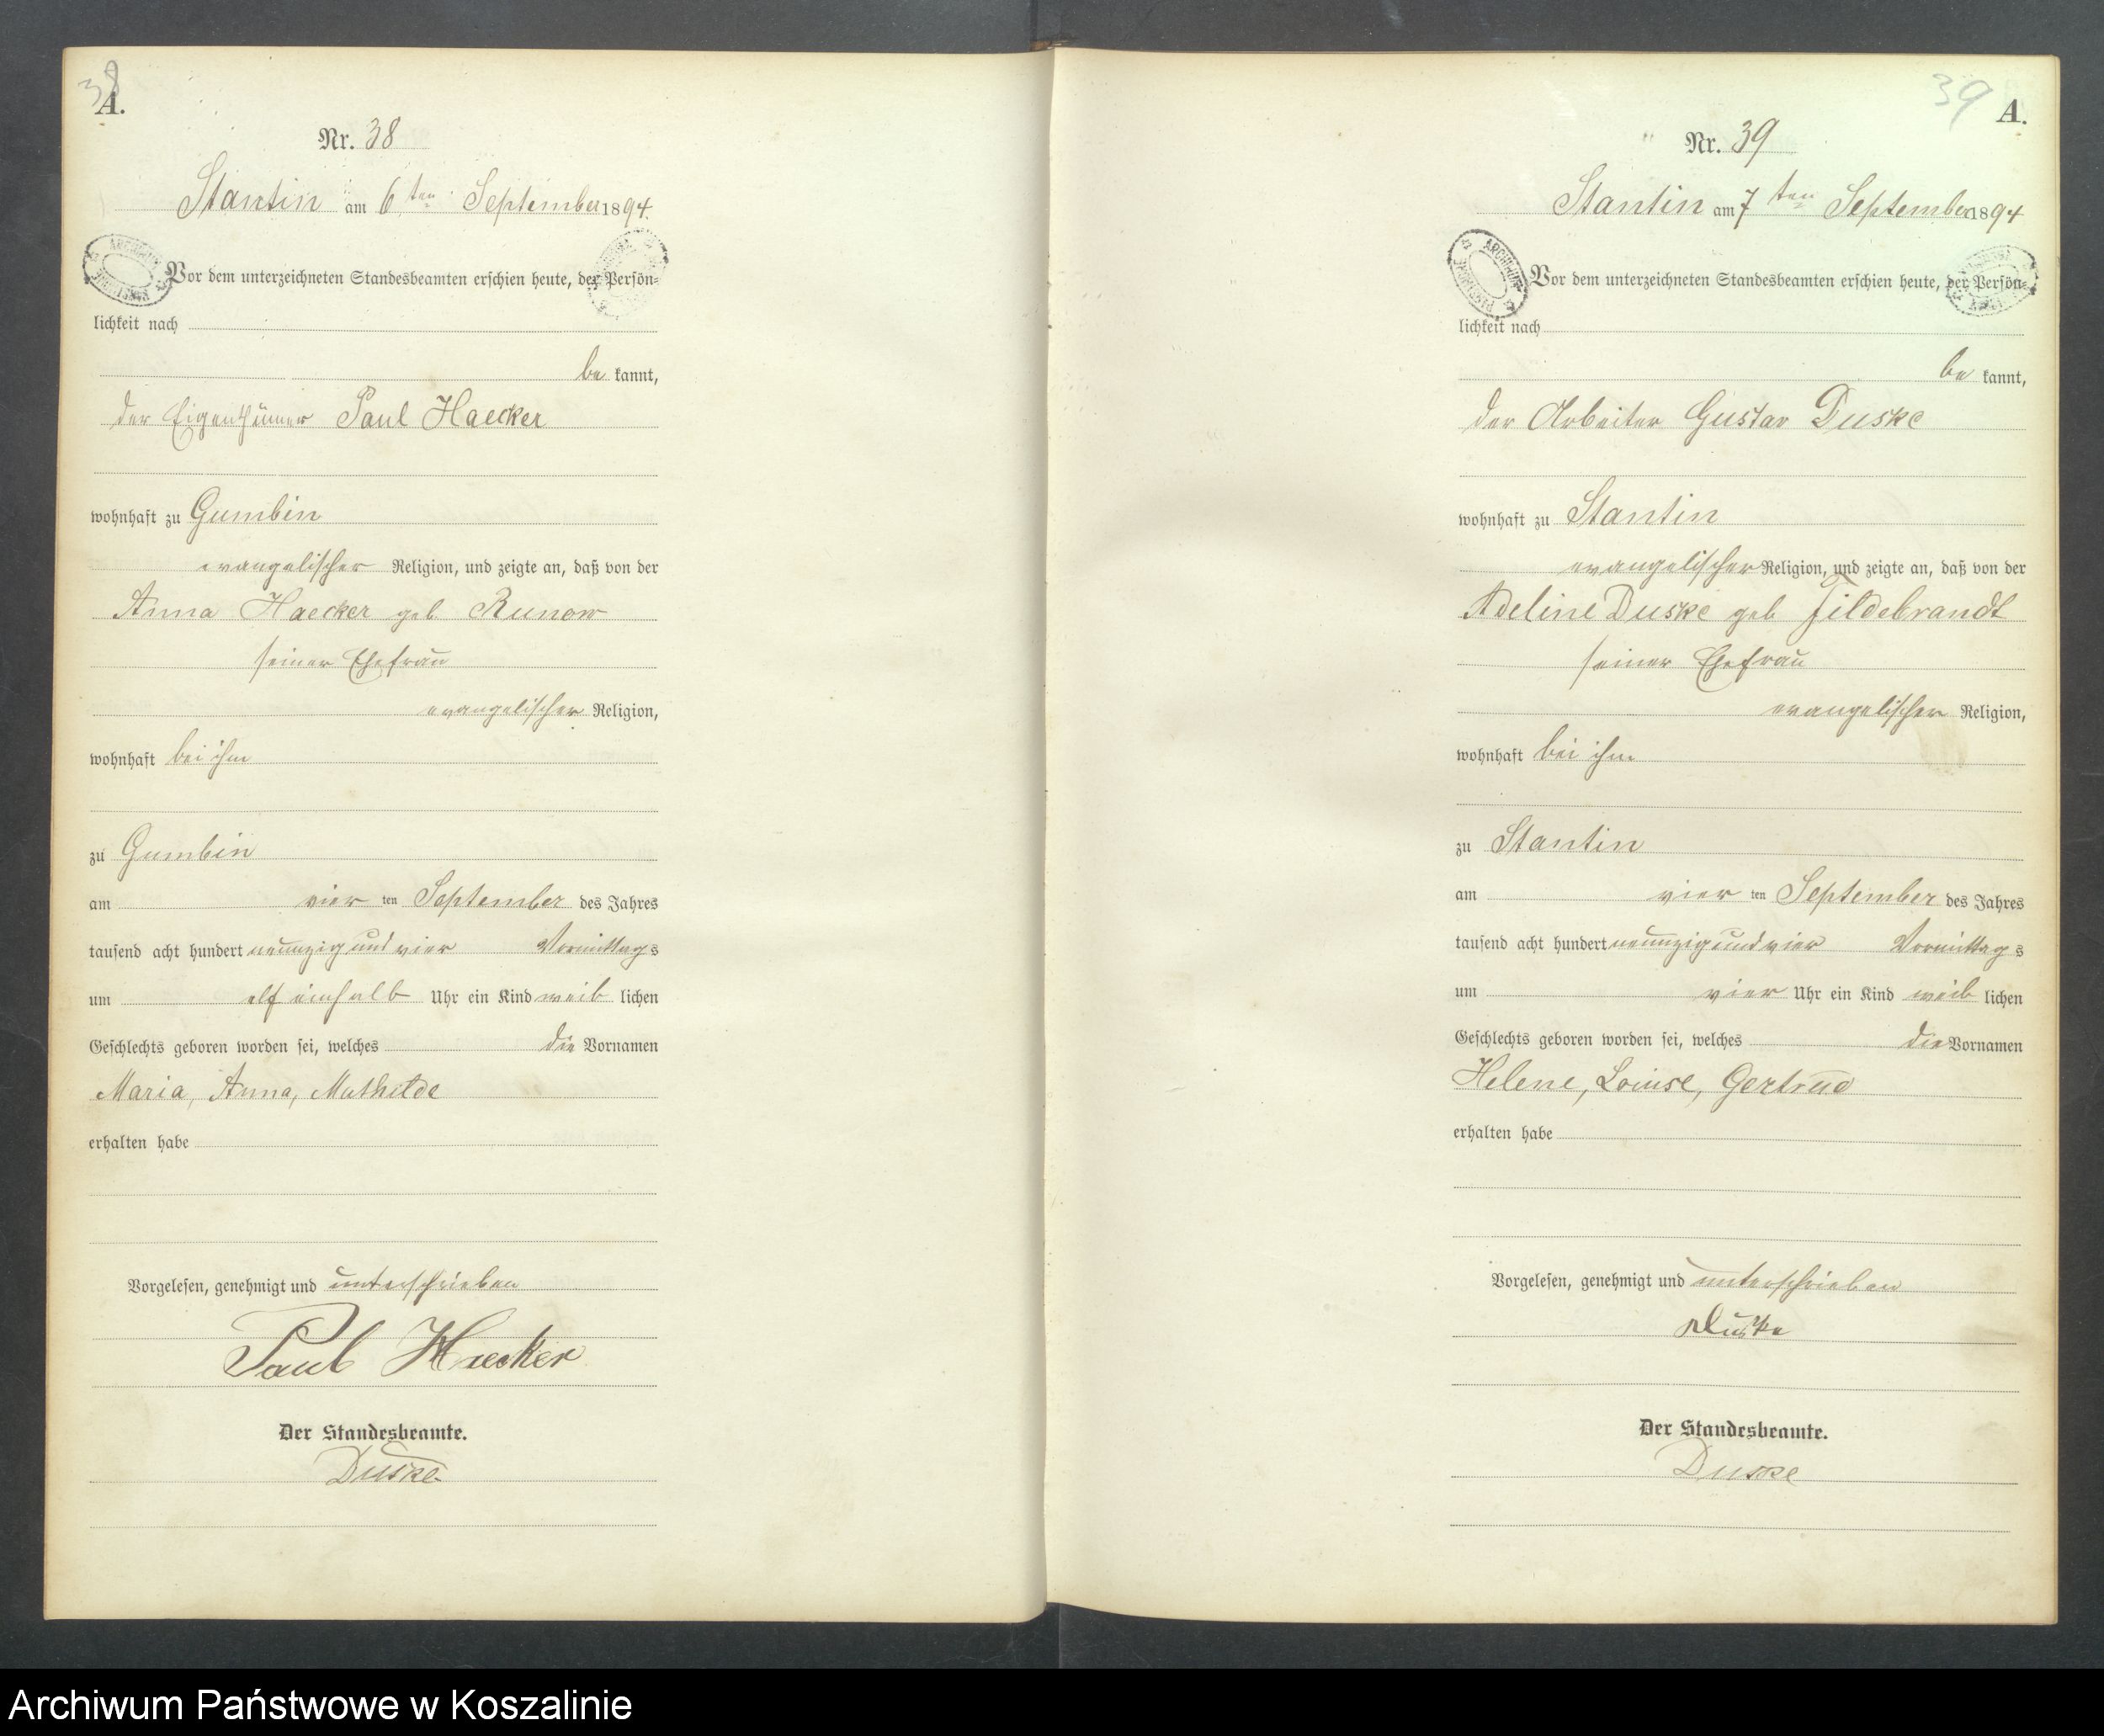 38
A.
Nr. 38
Stantin am 6ten September 1894.
Vor dem unterzeichneten Standesbeamten erschien heute, der Persön-
lichkeit nach
be kannt,
der Eigenthümer Paul Haecker
wohnhaft zu Gumbin
evangelischer Religion, und zeigte an, daß von der
Anna Haecker geb. Runow
seiner Ehefrau
evangelischer Religion,
wohnhaft bei ihm
zu Gumbin
am vier ten September des Jahres
tausend acht hundert neunzig und vier Vormittags
um elf einhalb Uhr ein Kind weib lichen
Geschlechts geboren worden sei, welches die Vornamen
Maria, Anna, Mathilde
erhalten habe
Vorgelesen, genehmigt und unterschrieben
Paul Haecker
Der Standesbeamte.
Duske
39
A.
Nr. 39
Stantin am 7ten September 1894
Vor dem unterzeichneten Standesbeamten erschien heute, der Persön-
lichkeit nach
be kannt,
der Arbeiter Gustav Duske
wohnhaft zu Stantin
evangelischer Religion, und zeigte an, daß von der
Adeline Duske geb Hildebrandt
seiner Ehefrau
evangelischer Religion,
wohnhaft bei ihm
zu Stantin
am vier ten September des Jahres
tausend acht hundert neunzig und vier Vormittags
um vier Uhr ein Kind weib lichen
Geschlechts geboren worden sei, welches die Vornamen
Helene, Louise, Gertrud
erhalten habe
Vorgelesen, genehmigt und unterschrieben
Duske
Der Standesbeamte.
Duske
Archiwum Państwowe w Koszalinie